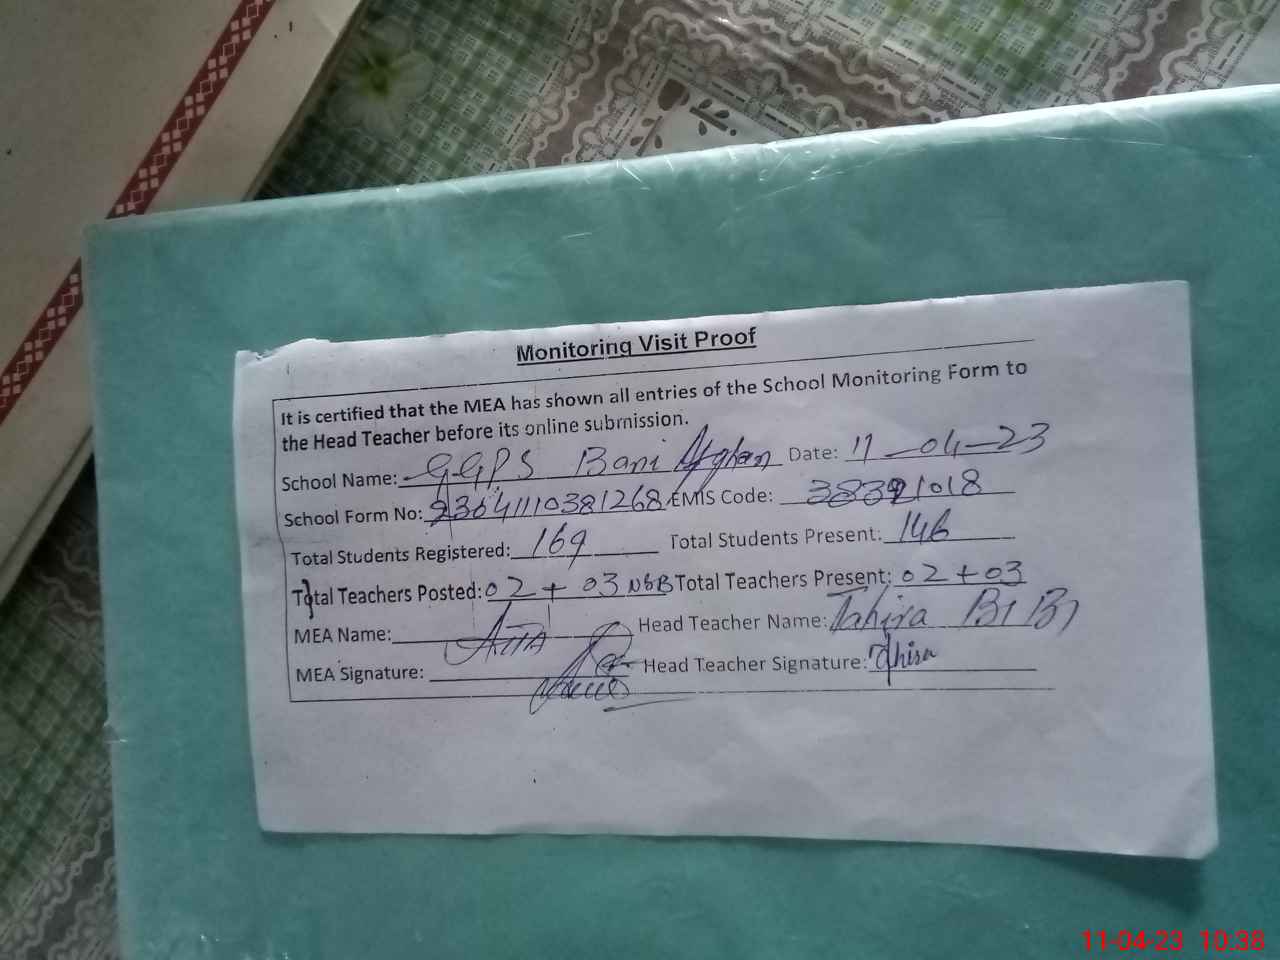 Monitoring Visit Proof
It is certified that the MEA has shown all entries of the School Monitoring Form to
the Head Teacher before its online submission.
School Name: GGPS Bani Afghan Date: 11-04-23
School Form No: 23041110381268 EMIS Code: 38321018
Total Students Registered: 169 Total Students Present: 146
Total Teachers Posted: 02 + 03 NSB Total Teachers Present: 02 + 03
MEA Name: Head Teacher Name: Tahira BI BI
MEA Signature: Head Teacher Signature: Tahira
11-04-23 10:38